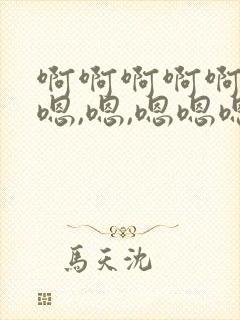 啊啊啊啊啊
嗯,嗯,嗯嗯嗯
馬天沈